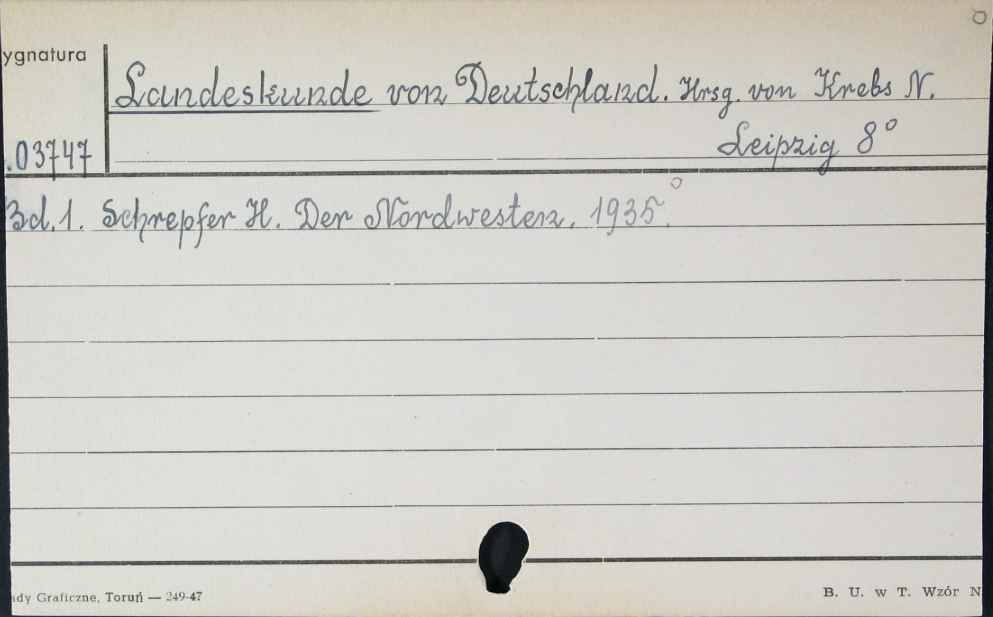 ygnatura
Landeskunde von Deutschland. Hrsg. von Krebs N.
.03747
Leipzig 8°
Bd. 1. Schrepfer H. Der Nordwesten. 1935.
ady Graficzne, Toruń — 249-47
B. U. w T. Wzór N